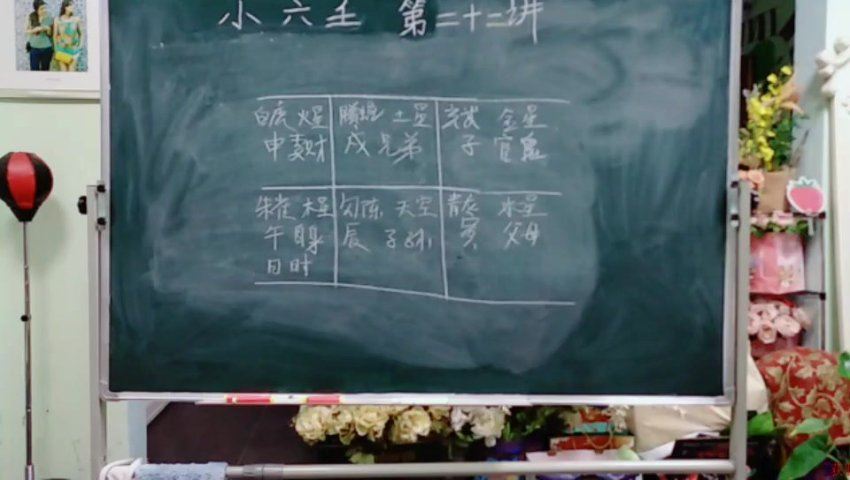 小六壬 第二十二讲
白虎 火星
申 妻财
螣蛇 土星
戌 兄弟
玄武 金星
子 官鬼
朱雀 木星
午 自身
日时
勾陈 天空
辰 子孙
青龙 水星
寅 父母